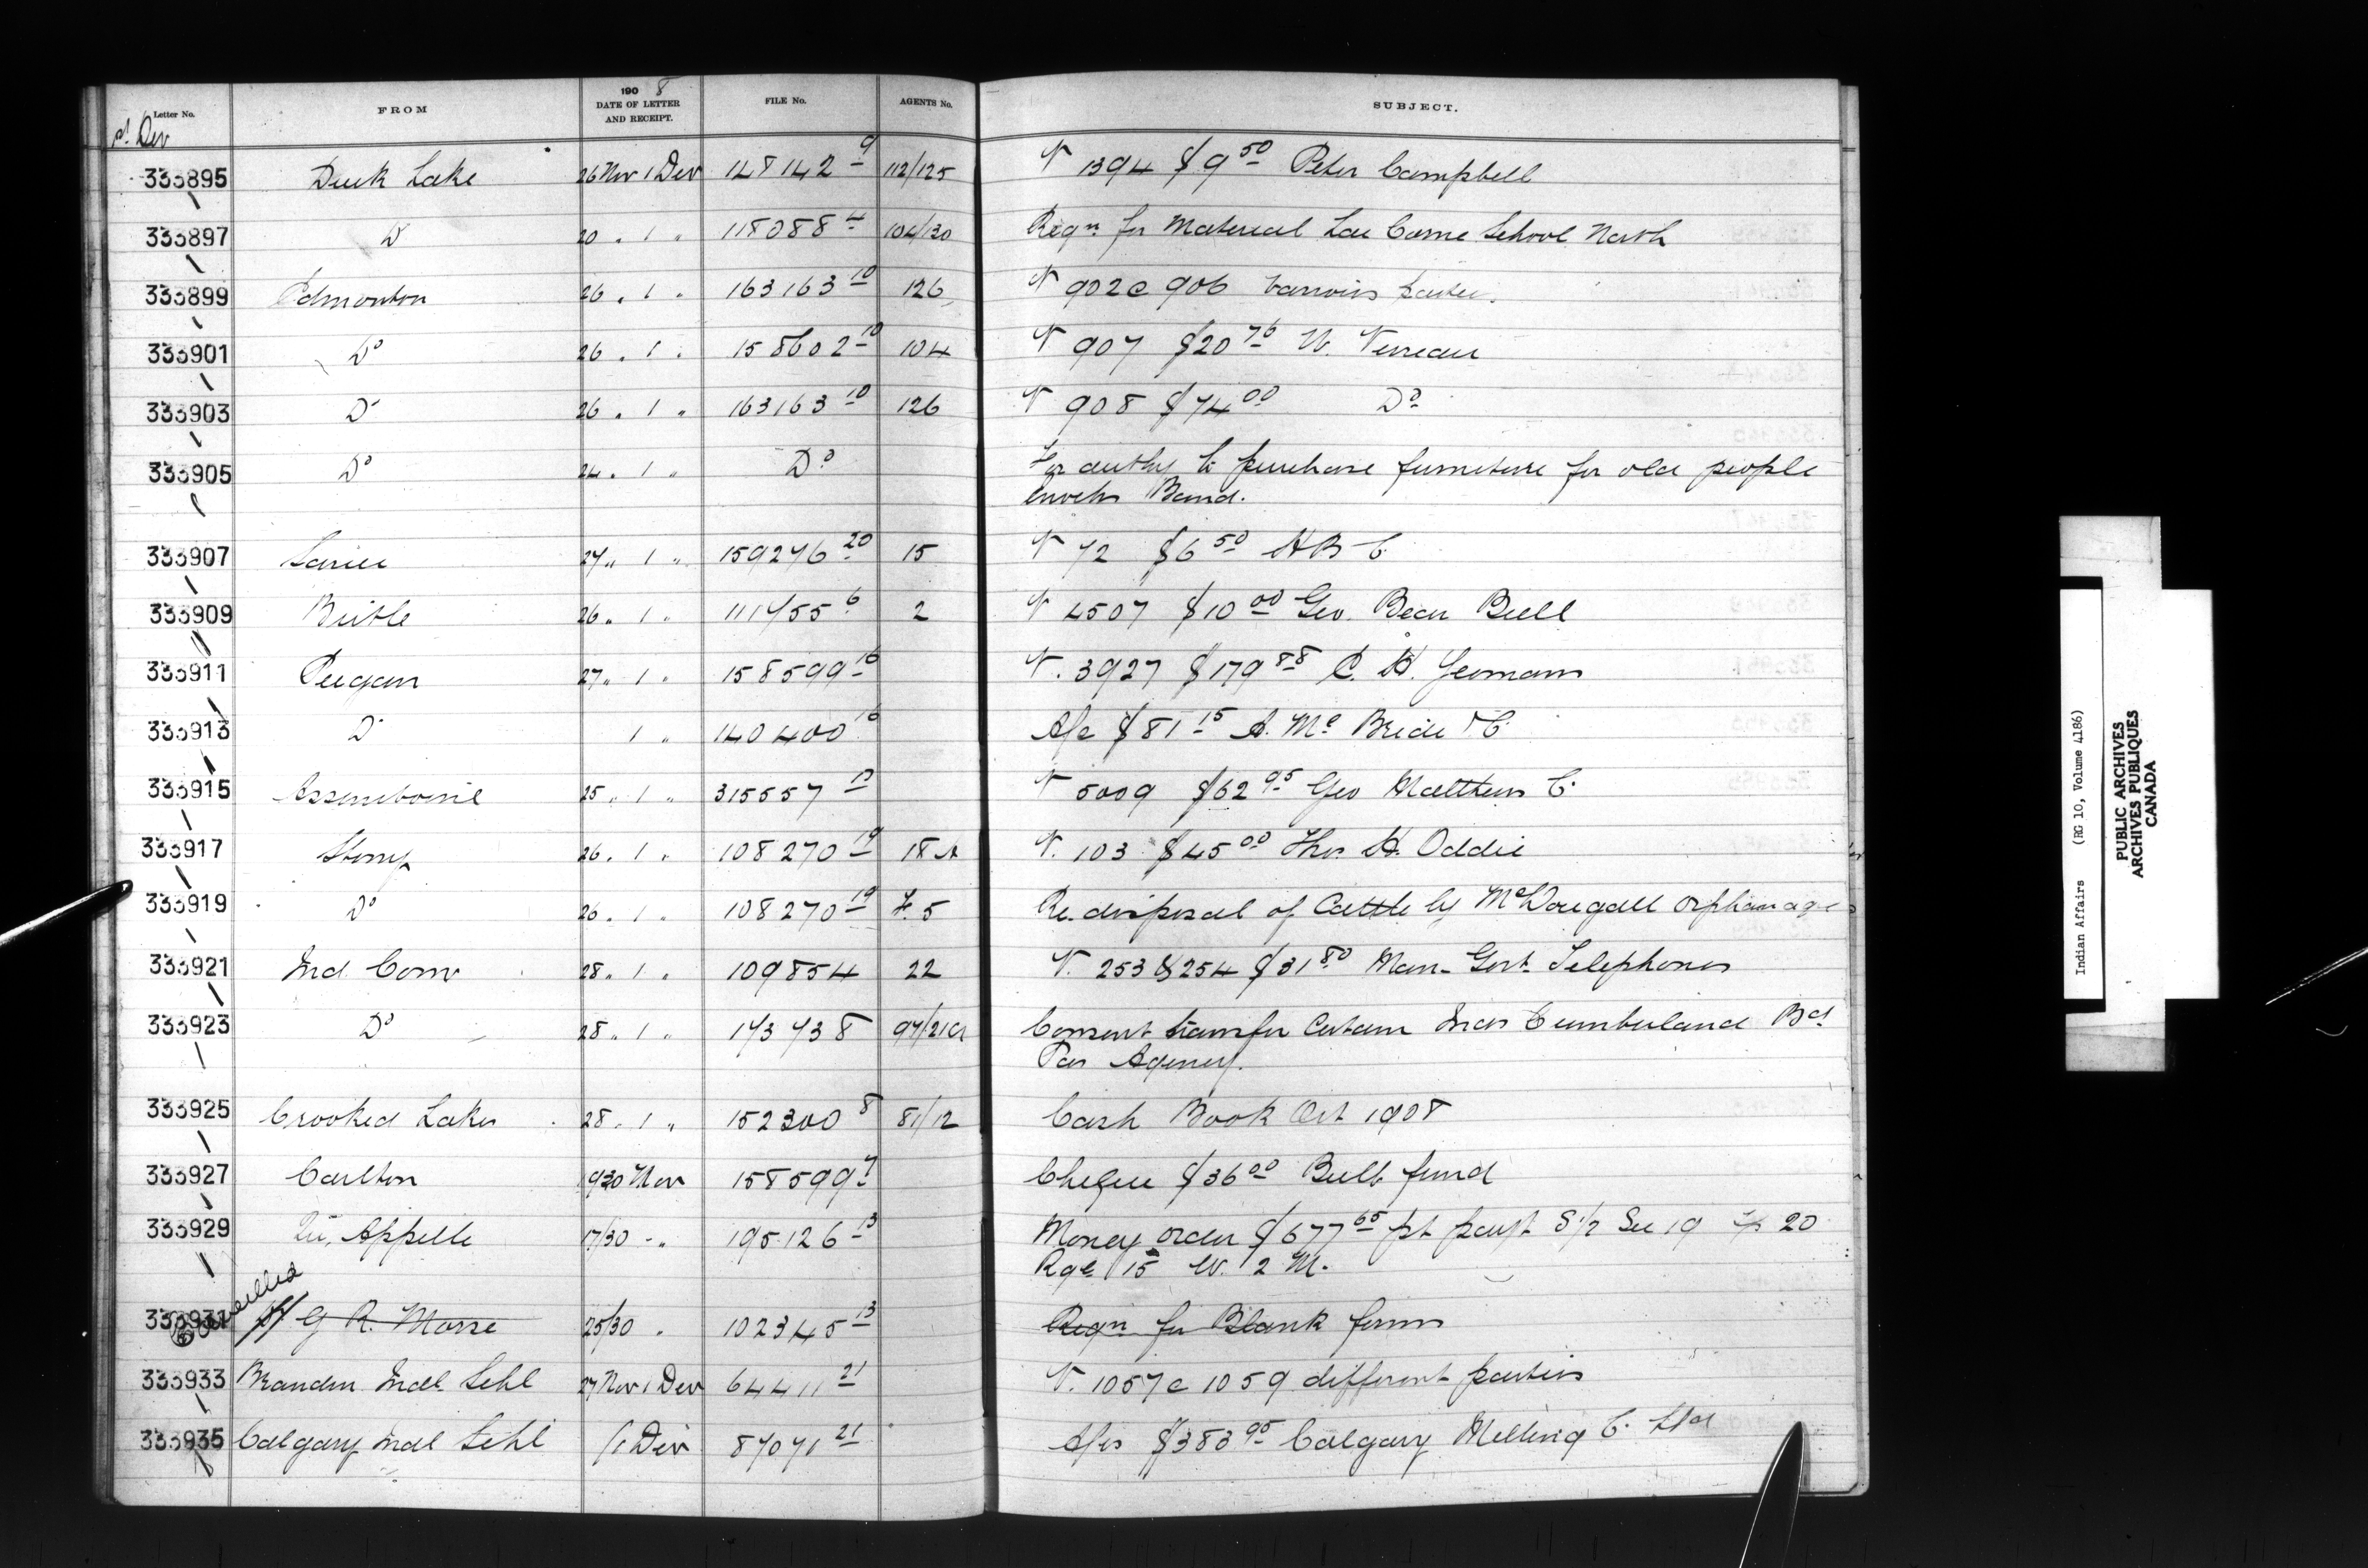 Letter No. FROM 1908 DATE OF LETTER AND RECEIPT. FILE No. AGENTS No. SUBJECT.
1st Dec
333895 Duck Lake 26 Nov 1 Dec 148142 9 112/125 V 1394 $9 50 Peter Campbell
333897 Do 20 " 1 " 118088 4 104/130 Reqn for Material Lac Corne School North
333899 Edmonton 26 " 1 " 163163 10 126 V 902 @ 906 various parties.
333901 Do 26 " 1 " 158602 10 104 V 907 $20 76
333903 Do 26 " 1 " 163163 10 126 V 908 $74 00 Do
333905 Do 24 " 1 " Do For authy to purchase furniture for old people
Enochs Band.
333907 Sarcee 27 " 1 " 159276 20 15 V 72 $6 50 H B C
333909 Birtle 26 " 1 " 111755 6 2 V 4507 $10 00 Geo. Bear Bull
333911 Peigan 27 " 1 " 158599 16 V. 3927 $179 88 C. H. Yeomans
333913 Do 1 " 140400 16 A/c $81 15 A. Mc Bride & C
333915 Assiniboine 25 " 1 " 315557 13 V 5009 $62 95 Geo Matthews C.
333917 Stony 26 " 1 " 108270 19 18 A V. 103 $45 00 Thos. H. Oddie
333919 Do 26 " 1 " 108270 19 F. 5 Re. disposal of Cattle by McDougall orphanage
333921 Ind. Comr 28 " 1 " 109854 22 V. 253 & 254 $31 80 Man. Govt. Telephones
333923 Do 28 " 1 " 173738 97/21 Consent transfer certain Inds Cumberland Bd.
Pas Agency.
333925 Crooked Lakes 28 " 1 " 152300 8 81/12 Cash Book Oct 1908
333927 Carlton 19/30 Nov 158599 7 Cheque $36 00 Bull fund
333929 Qu. Appelle 17/30 " 195126 13 Money order $677 65 pt payt S 1/2 Sec 19 Tp 20
Rge 15 W. 2 M.
Cancelled
333931 G R. Morse 25/30 " 102345 13 Reqn for Blank forms
333933 Brandon Indl. Schl 27 Nov 1 Dec 64411 21 V. 1057 @ 1059 different parties
333935 Calgary Indl Schl /1 Dec 87071 21 A/cs $383 95 Calgary Milling C. Ltd
Indian Affairs (RG 10, Volume 4186)
PUBLIC ARCHIVES
ARCHIVES PUBLIQUES
CANADA